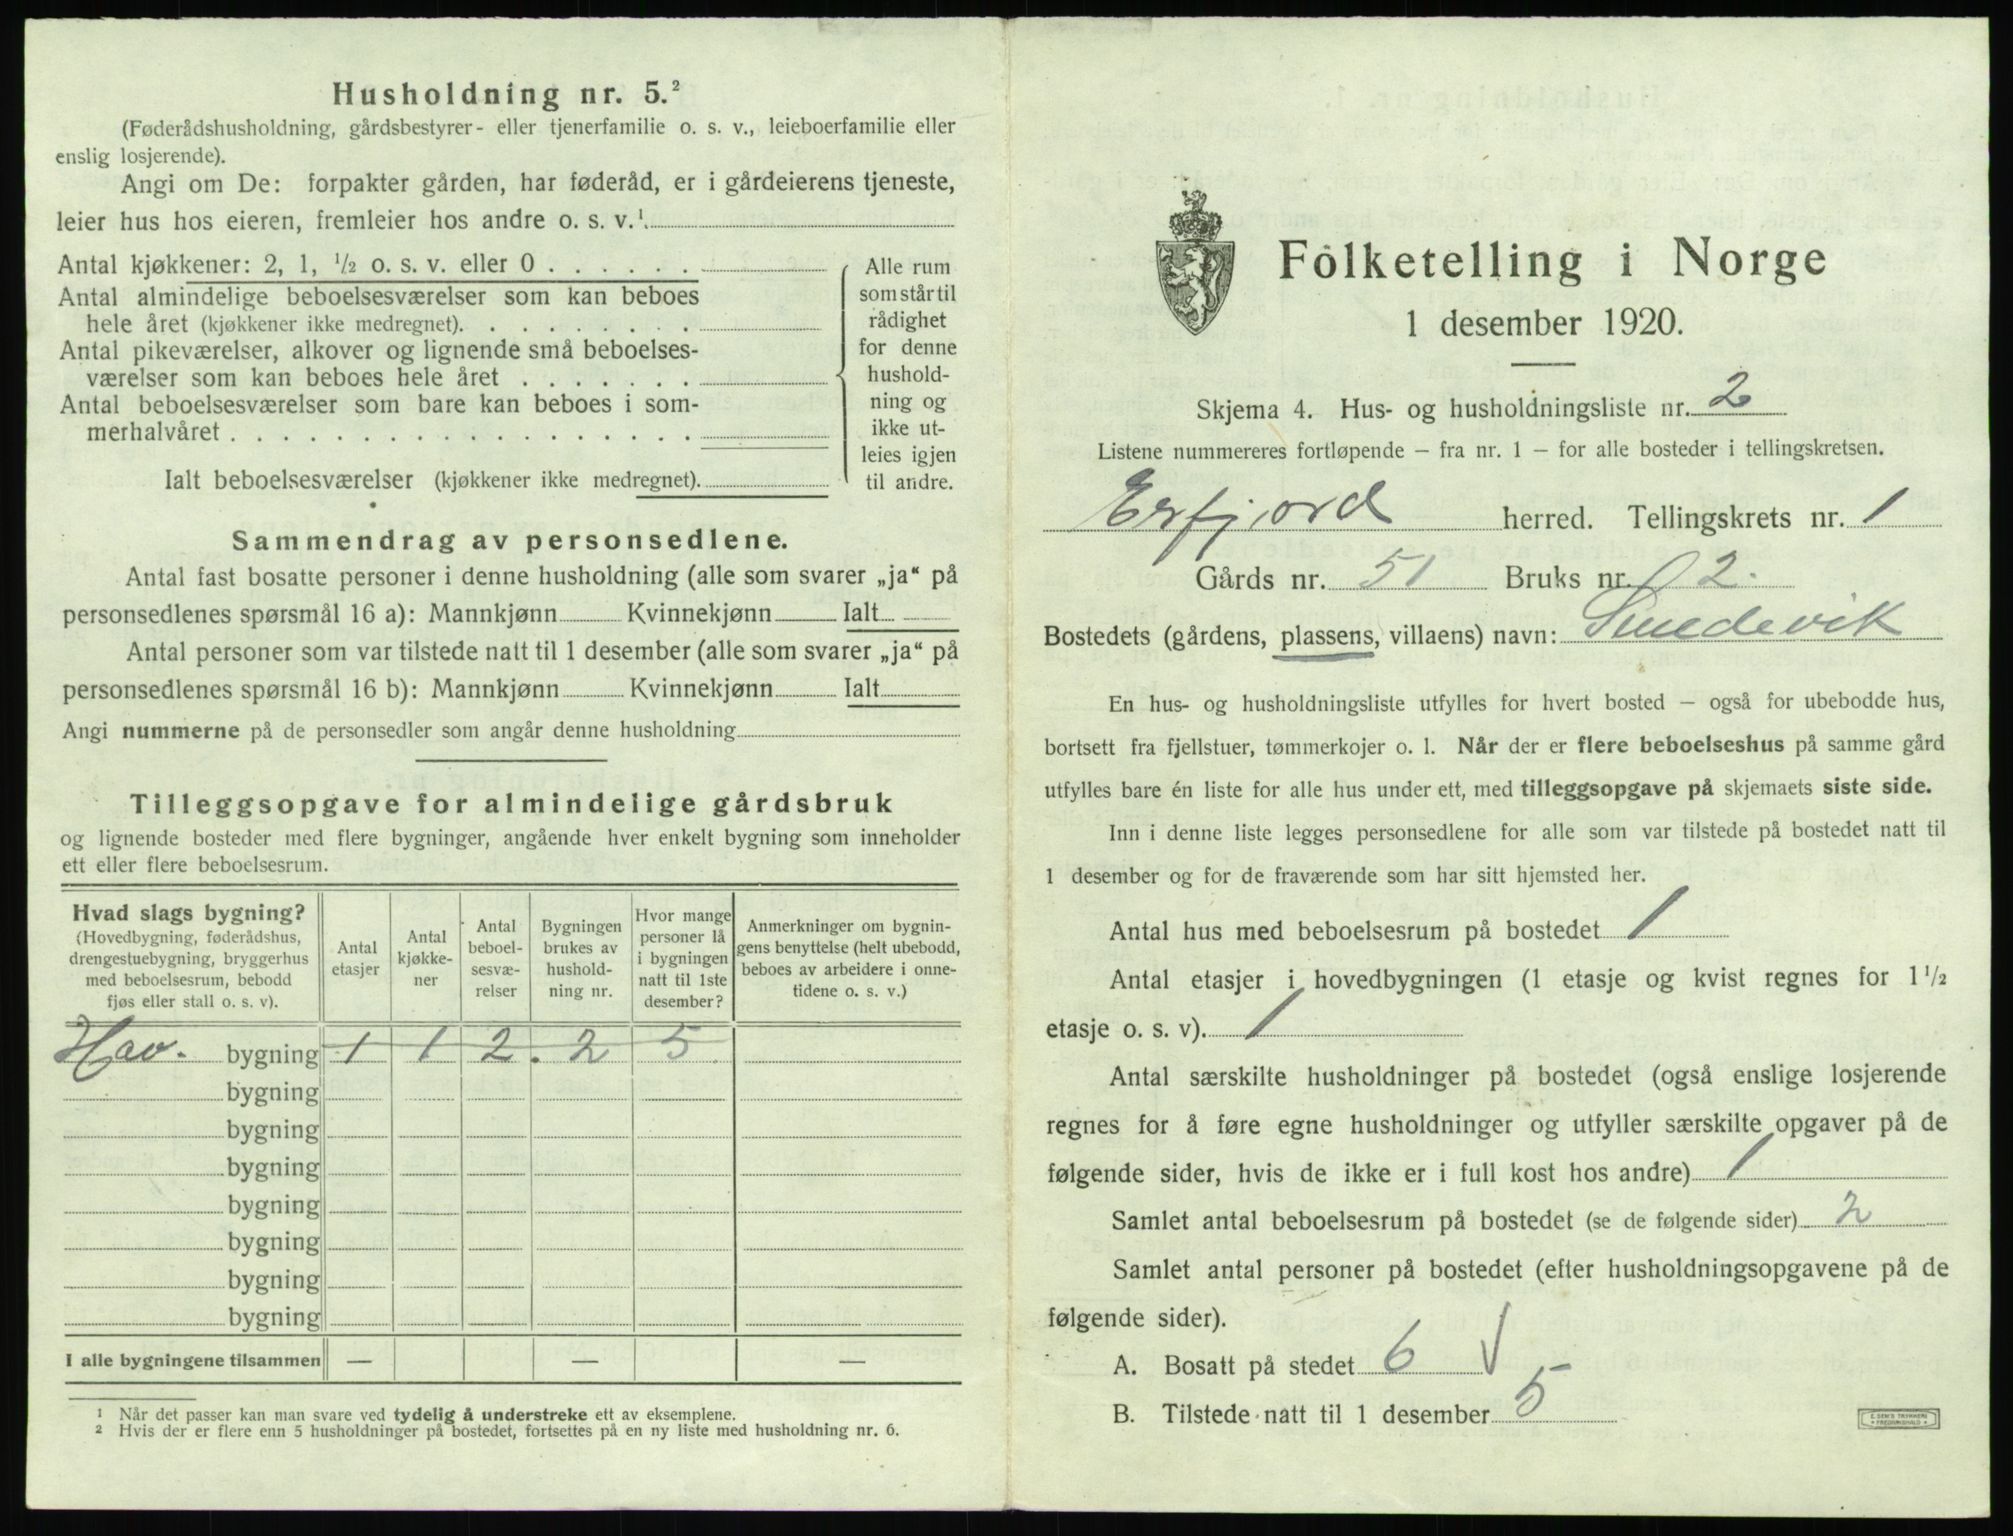 Husholdning nr. 5.²
(Føderådshusholdning, gårdsbestyrer- eller tjenerfamilie o. s. v., leieboerfamilie eller
enslig losjerende).
Angi om De: forpakter gården, har føderåd, er i gårdeierens tjeneste,
leier hus hos eieren, fremleier hos andre o. s. v.¹
Antal kjøkkener: 2, 1, ½ o. s. v. eller 0 . . . . . .
Antal almindelige beboelsesværelser som kan beboes
hele året (kjøkkener ikke medregnet). . . . . . . . .
Antal pikeværelser, alkover og lignende små beboelses-
værelser som kan beboes hele året . . . . . . .
Antal beboelsesværelser som bare kan beboes i som-
merhalvåret . . . . . . . . . . . . . . . . . .
Ialt beboelsesværelser (kjøkkener ikke medregnet).
Alle rum
som står til
rådighet
for denne
hushold-
ning og
ikke ut-
leies igjen
til andre.
Sammendrag av personsedlene.
Antal fast bosatte personer i denne husholdning (alle som svarer „ja“ på
personsedlenes spørsmål 16 a): Mannkjønn Kvinnekjønn Ialt
Antal personer som var tilstede natt til 1 desember (alle som svarer „ja“ på
personsedlenes spørsmål 16 b): Mannkjønn Kvinnekjønn Ialt
Angi nummerne på de personsedler som angår denne husholdning
Tilleggsopgave for almindelige gårdsbruk
og lignende bosteder med flere bygninger, angående hver enkelt bygning som inneholder
ett eller flere beboelsesrum.
Hvad slags bygning?
(Hovedbygning, føderådshus,
drengestuebygning, bryggerhus
med beboelsesrum, bebodd
fjøs eller stall o. s. v).
Antal
etasjer
Antal
kjøkke-
ner
Antal
beboel-
sesvæ-
relser
Bygningen
brukes av
hushold-
ning nr.
Hvor mange
personer lå
i bygningen
natt til 1ste
desember?
Anmerkninger om bygnin-
gens benyttelse (helt ubebodd,
beboes av arbeidere i onne-
tidene o. s. v.)
Hav. bygning 1 1 2. 2 5
bygning
bygning
bygning
bygning
bygning
bygning
bygning
I alle bygningene tilsammen — — —
¹ Når det passer kan man svare ved tydelig å understreke ett av eksemplene.
² Hvis der er flere enn 5 husholdninger på bostedet, fortsettes på en ny liste med husholdning nr. 6.
Folketelling i Norge
1 desember 1920.
Skjema 4. Hus- og husholdningsliste nr. 2
Listene nummereres fortløpende – fra nr. 1 – for alle bosteder i tellingskretsen.
Erfjord herred. Tellingskrets nr. 1
Gårds nr. 51 Bruks nr. 2.
Bostedets (gårdens, plassens, villaens) navn: Smedevik
En hus- og husholdningsliste utfylles for hvert bosted – også for ubebodde hus,
bortsett fra fjellstuer, tømmerkojer o. l. Når der er flere beboelseshus på samme gård
utfylles bare én liste for alle hus under ett, med tilleggsopgave på skjemaets siste side.
Inn i denne liste legges personsedlene for alle som var tilstede på bostedet natt til
1 desember og for de fraværende som har sitt hjemsted her.
Antal hus med beboelsesrum på bostedet 1
Antal etasjer i hovedbygningen (1 etasje og kvist regnes for 1½
etasje o. s. v). 1
Antal særskilte husholdninger på bostedet (også enslige losjerende
regnes for å føre egne husholdninger og utfyller særskilte opgaver på de
følgende sider, hvis de ikke er i full kost hos andre) 1
Samlet antal beboelsesrum på bostedet (se de følgende sider) 2
Samlet antal personer på bostedet (efter husholdningsopgavene på de
følgende sider).
A. Bosatt på stedet 6 √
B. Tilstede natt til 1 desember 5